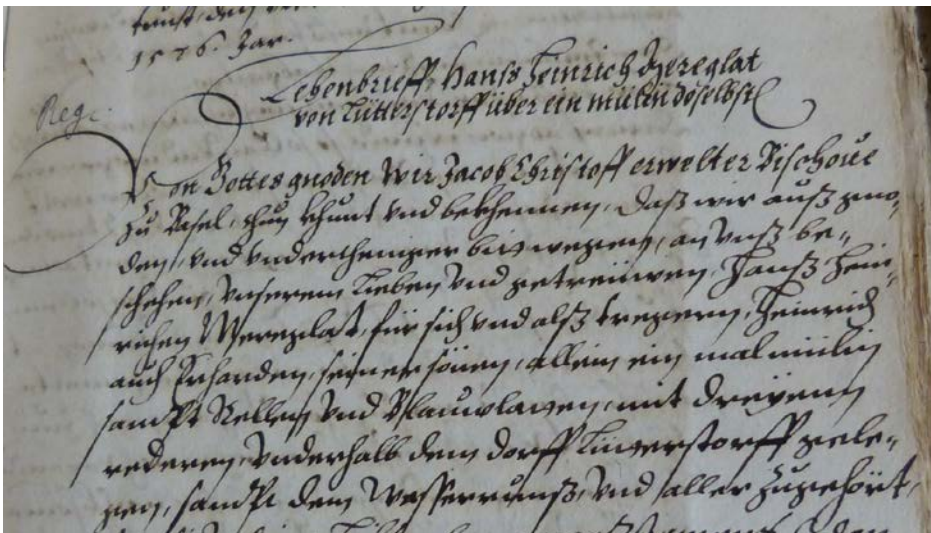 1576. Jar.
Reg:
Lehenbrieff Hanß Heinrich Mereglat
von Lütterstorff über ein müli doselbst
Von Gottes gnoden Wir Jacob Christoff erwelter Bischoue
Zu Basel, thun khunt vnd bekhennen, daß wir auß gno,
den, vnd vndertheniger bit wegen, an vnß be,,
schehen, vnserem lieben vnd getreüwen, Hanß Hein,
richen Mereglat, für sich vnd alß tregern, Heinrich
auch Erharden, seiner sönen, allein ein malmülin
sampt Rellen vnd Plauwlagen, mit dreyen
rederen, vnderhalb dem dorff gele,,
gen, sampt dem Wasserrunß, vnd aller Zugehört,